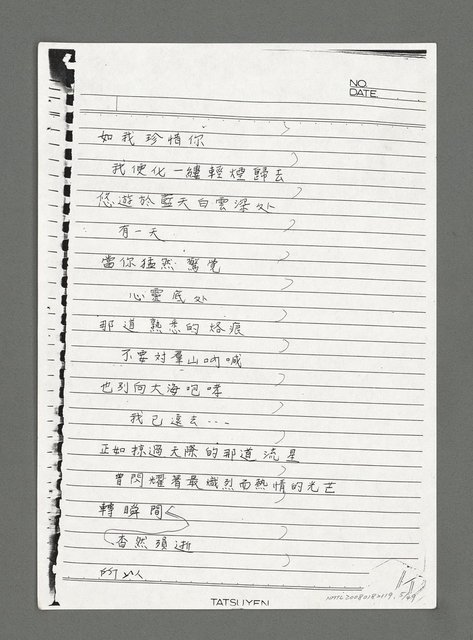 NO.
DATE.
如我珍惜你
我便化一縷輕煙歸去
悠遊於藍天白雲深处
有一天
當你猛然驚覺
心靈底处
那道熟悉的烙痕
不要對羣山吶喊
也別向大海咆哮
我已遠去…
正如掠過天際的那道流星
曾閃耀著最熾烈而熱情的光芒
轉瞬間
杳然須逝
所以
TATSUYEN
NMTL20080182119. 5/49